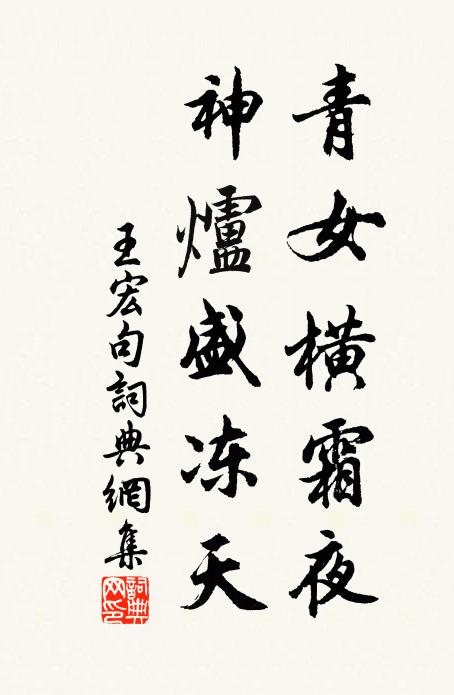 青女橫霜夜
神爐盛冻天
王宏句詞典網集
詞典
网印